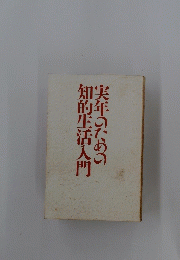 実年のための
知的生活入門